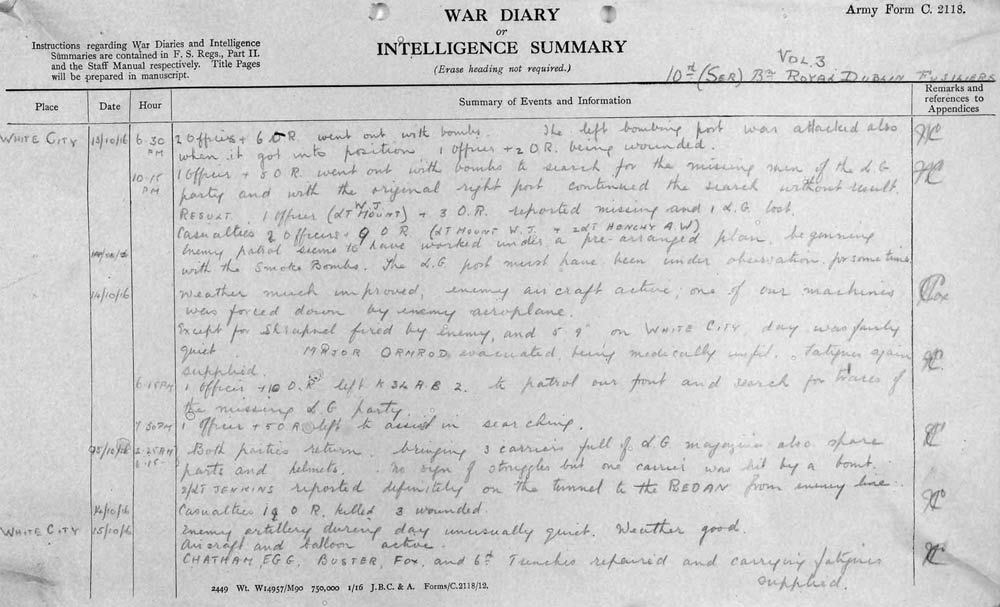 WAR DIARY
or
INTELLIGENCE SUMMARY
(Erase heading not required.)
Army Form C. 2118.
Instructions regarding War Diaries and Intelligence
Summaries are contained in F. S. Regs., Part II.
and the Staff Manual respectively. Title Pages
will be prepared in manuscript.
VOL. 3
10th (SER) Bn ROYAL DUBLIN FUSILIERS
Place Date Hour Summary of Events and Information Remarks and references to Appendices
WHITE CITY 13/10/16 6.30 PM 2 Officers + 6 O.R. went out with bombs. The left bombing post was attacked also
when it got into position 1 officer + 2 O.R. being wounded.
10.15 PM 1 Officer + 8 O.R. went out with bombs to search for the missing men of the L.G.
party and with the original right post continued the search without result
RESULT. 1 Officer (LT W J MOUNT) + 3 O.R. reported missing and 1 L.G. lost.
Casualties 2 Officers + 9 O.R. (LT MOUNT W. J. + 2LT A.W)
Enemy patrol seems to have worked under a pre-arranged plan, beginning
with the Smoke Bombs. The L.G. post must have been under observation for some time.
14/10/16 Weather much improved, enemy aircraft active; one of our machines
was forced down by enemy aeroplane.
Except for Shrapnel fired by Enemy, and 5.9" on WHITE CITY, day was fairly
quiet. MAJOR ORMROD evacuated, being medically unfit. Fatigues again
supplied.
6.15 PM 1 Officer + 10 O.R. left K 34 A B 2. to patrol our front and search for traces of
the missing L.G. party.
7.30 PM 1 Officer + 5 O.R. left to assist in searching.
15/10/16 2.25 AM Both parties return bringing 3 carriers full of L.G. magazines also spare
parts and helmets. No sign of struggles but one carrier was hit by a bomb.
2/LT JENKINS reported definitely on the tunnel to the REDAN from enemy line.
14/10/16 Casualties 1 O.R. killed 3 wounded.
WHITE CITY 15/10/16 Enemy artillery during day unusually quiet. Weather good.
Aircraft and balloon active.
CHATHAM, EGG, BUSTER, FOX, and 6th Trenches repaired and carrying fatigues
supplied.
2449 Wt. W14957/M90 750,000 1/16 J.B.C. & A. Forms/C.2118/12.